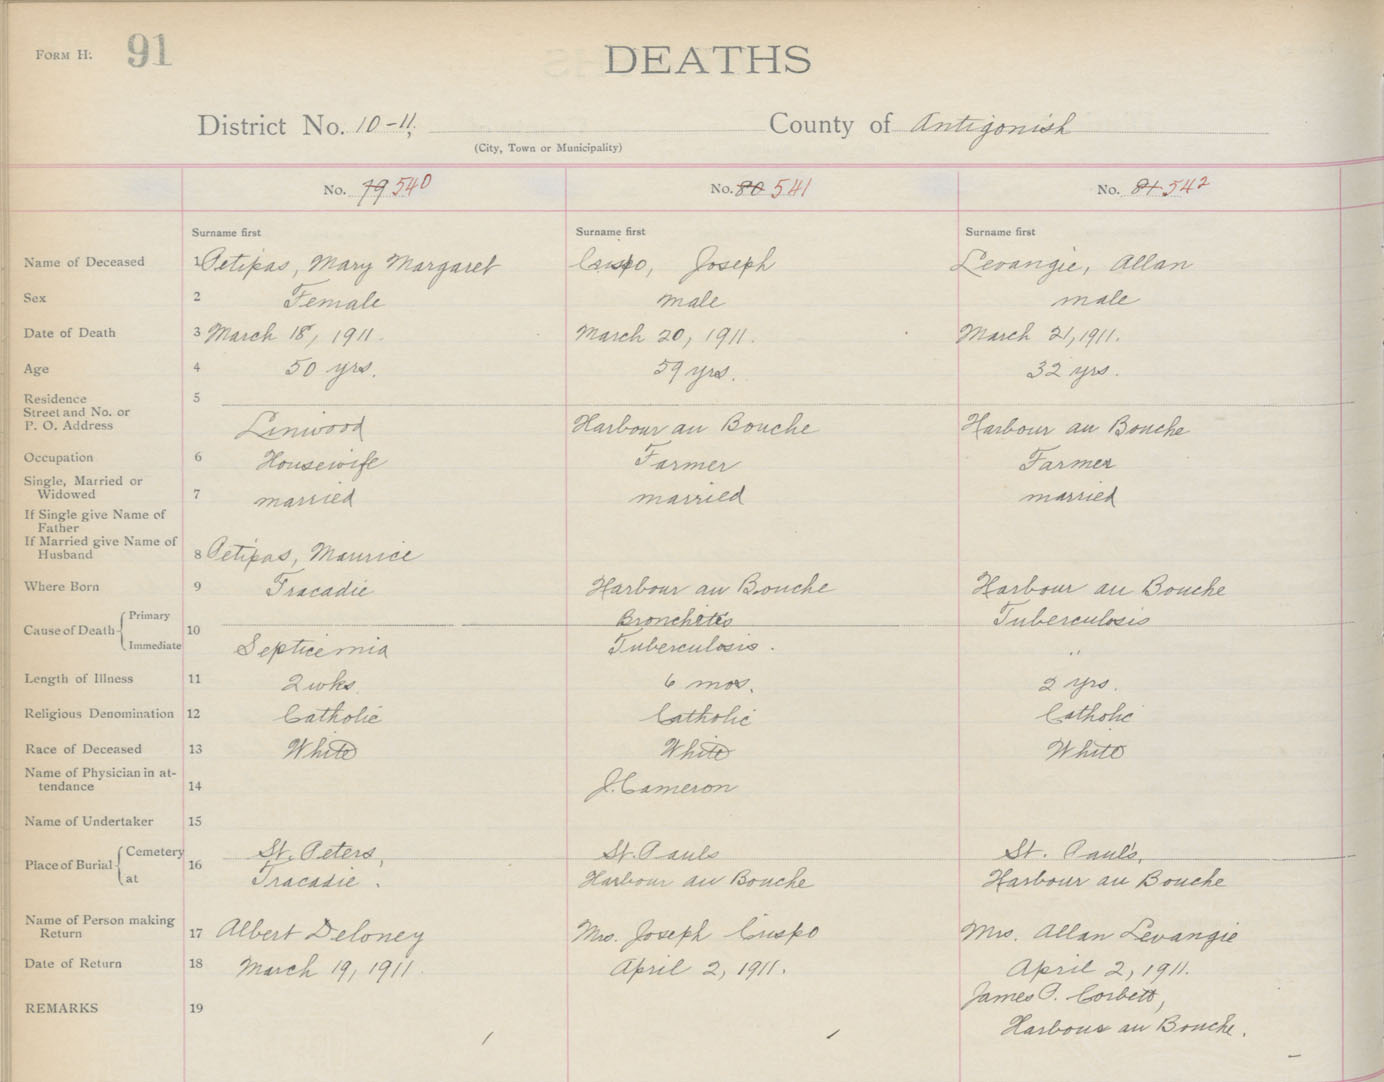 FORM H. 91
DEATHS
District No. 10-11, County of Antigonish
(City, Town or Municipality)
No. 79 540 No. 80 541 No. 81 542
Surname first Surname first Surname first
Name of Deceased 1 Petipas, Mary Margaret Crispo, Joseph Levangie, Allan
Sex 2 Female male male
Date of Death 3 March 18, 1911. March 20, 1911. March 21, 1911.
Age 4 50 yrs. 59 yrs. 32 yrs.
Residence 5
Street and No. or
P. O. Address Linwood Harbour au Bouche Harbour au Bouche
Occupation 6 Housewife Farmer Farmer
Single, Married or
Widowed 7 married married married
If Single give Name of
Father
If Married give Name of
Husband 8 Petipas, Maurice
Where Born 9 Tracadie Harbour au Bouche Harbour au Bouche
Primary Bronchitis Tuberculosis
Cause of Death 10
Immediate Septicemia Tuberculosis. "
Length of Illness 11 2 wks. 6 mos. 2 yrs.
Religious Denomination 12 Catholic Catholic Catholic
Race of Deceased 13 White White White
Name of Physician in at-
tendance 14 J. Cameron
Name of Undertaker 15
Cemetery St. Peters, St. Pauls St. Paul's,
Place of Burial 16
at Tracadie. Harbour au Bouche Harbour au Bouche
Name of Person making
Return 17 Albert Deloney Mrs. Joseph Crispo Mrs. Allan Levangie
Date of Return 18 March 19, 1911. April 2, 1911. April 2, 1911.
James P. Corbett,
REMARKS 19
Harbour au Bouche.